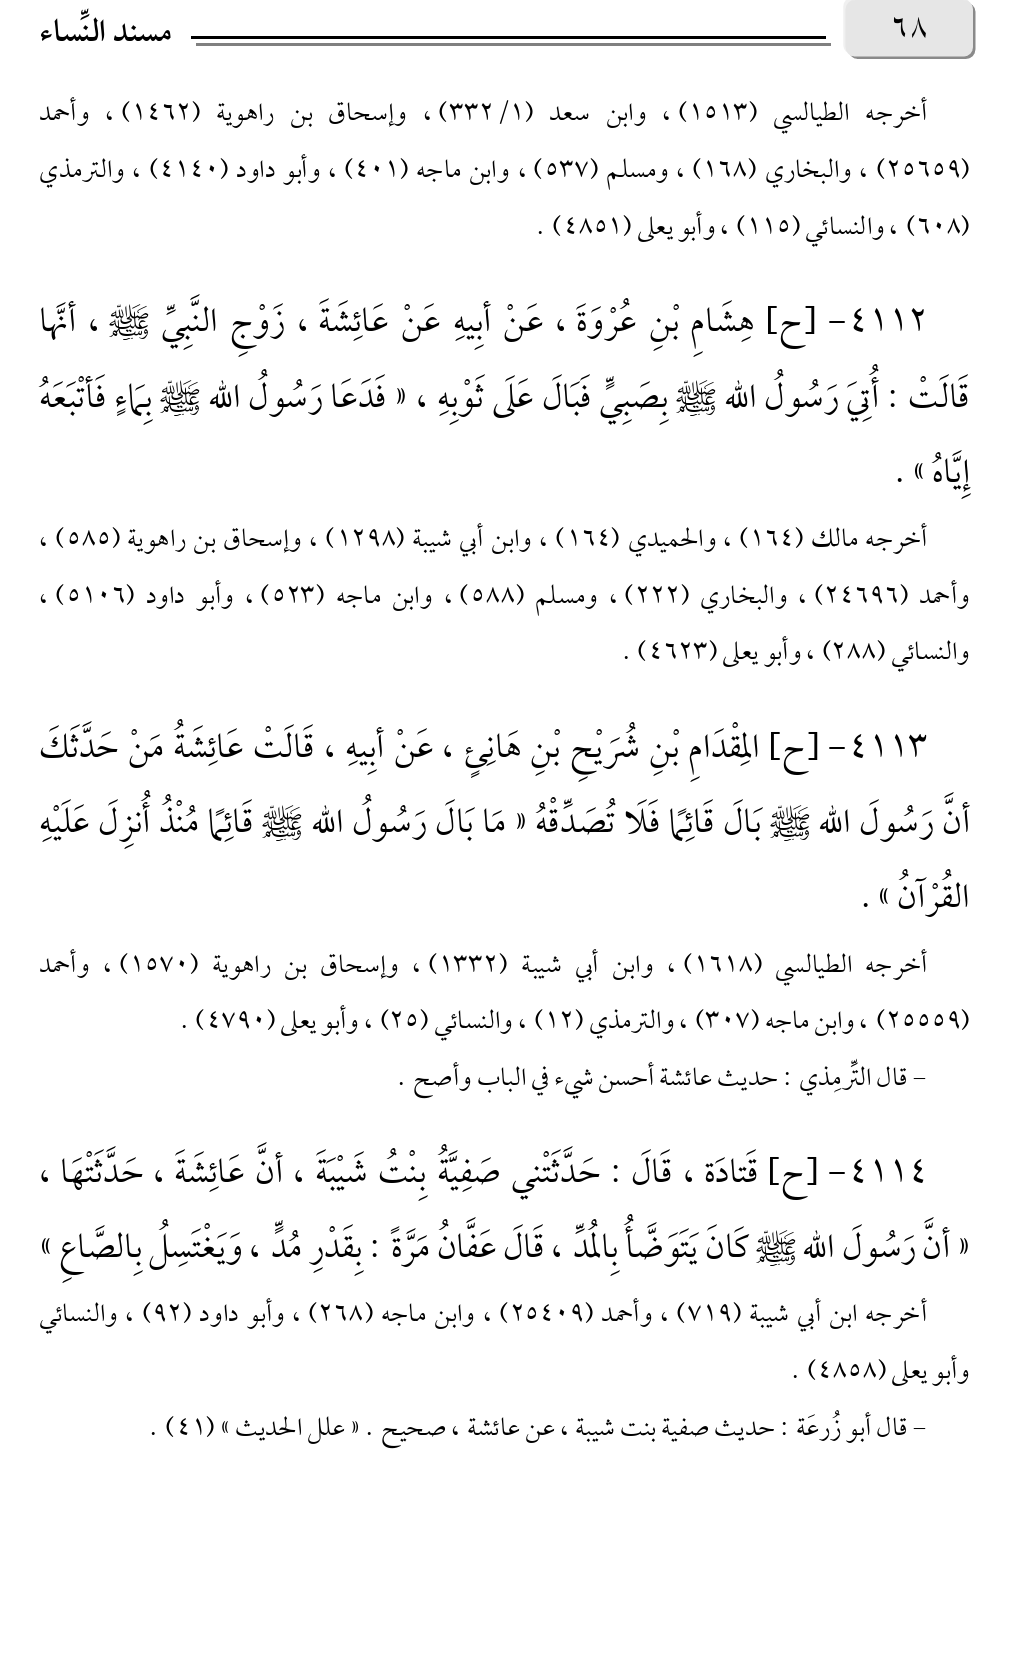 ٦٨
مسند النِّساء
أخرجه الطيالسي (١٥١٣) ، وابن سعد (١/ ٣٣٢) ، وإسحاق بن راهوية (١٤٦٢) ، وأحمد
(٢٥٦٥٩) ، والبخاري (١٦٨) ، ومسلم (٥٣٧) ، وابن ماجه (٤٠١) ، وأبو داود (٤١٤٠) ، والترمذي
(٦٠٨) ، والنسائي (١١٥) ، وأبو يعلى (٤٨٥١) .
٤١١٢- [ح] هِشَامِ بْنِ عُرْوَةَ ، عَنْ أبِيهِ عَنْ عَائِشَةَ ، زَوْجِ النَّبِيِّ ﷺ ، أنَّها
قَالَتْ : أُتِيَ رَسُولُ الله ﷺ بِصَبِيٍّ فَبَالَ عَلَى ثَوْبِهِ ، « فَدَعَا رَسُولُ الله ﷺ بِمَاءٍ فَأتْبَعَهُ
إِيَّاهُ » .
أخرجه مالك (١٦٤) ، والحميدي (١٦٤) ، وابن أبي شيبة (١٢٩٨) ، وإسحاق بن راهوية (٥٨٥) ،
وأحمد (٢٤٦٩٦) ، والبخاري (٢٢٢) ، ومسلم (٥٨٨) ، وابن ماجه (٥٢٣) ، وأبو داود (٥١٠٦) ،
والنسائي (٢٨٨) ، وأبو يعلى (٤٦٢٣) .
٤١١٣- [ح] المِقْدَامِ بْنِ شُرَيْحِ بْنِ هَانِئٍ ، عَنْ أبِيهِ ، قَالَتْ عَائِشَةُ مَنْ حَدَّثَكَ
أنَّ رَسُولَ الله ﷺ بَالَ قَائِمًا فَلَا تُصَدِّقْهُ « مَا بَالَ رَسُولُ الله ﷺ قَائِمًا مُنْذُ أُنزِلَ عَلَيْهِ
القُرْآنُ » .
أخرجه الطيالسي (١٦١٨) ، وابن أبي شيبة (١٣٣٢) ، وإسحاق بن راهوية (١٥٧٠) ، وأحمد
(٢٥٥٥٩) ، وابن ماجه (٣٠٧) ، والترمذي (١٢) ، والنسائي (٢٥) ، وأبو يعلى (٤٧٩٠) .
– قال التِّرمِذي : حديث عائشة أحسن شيء في الباب وأصح .
٤١١٤- [ح] قَتادَة ، قَالَ : حَدَّثَتْني صَفِيَّةُ بِنْتُ شَيْبَةَ ، أنَّ عَائِشَةَ ، حَدَّثَتْهَا ،
« أنَّ رَسُولَ الله ﷺ كَانَ يَتَوَضَّأُ بِالمُدِّ ، قَالَ عَفَّانُ مَرَّةً : بِقَدْرِ مُدٍّ ، وَيَغْتَسِلُ بِالصَّاعِ »
أخرجه ابن أبي شيبة (٧١٩) ، وأحمد (٢٥٤٠٩) ، وابن ماجه (٢٦٨) ، وأبو داود (٩٢) ، والنسائي
وأبو يعلى (٤٨٥٨) .
– قال أبو زُرعَة : حديث صفية بنت شيبة ، عن عائشة ، صحيح . « علل الحديث » (٤١) .